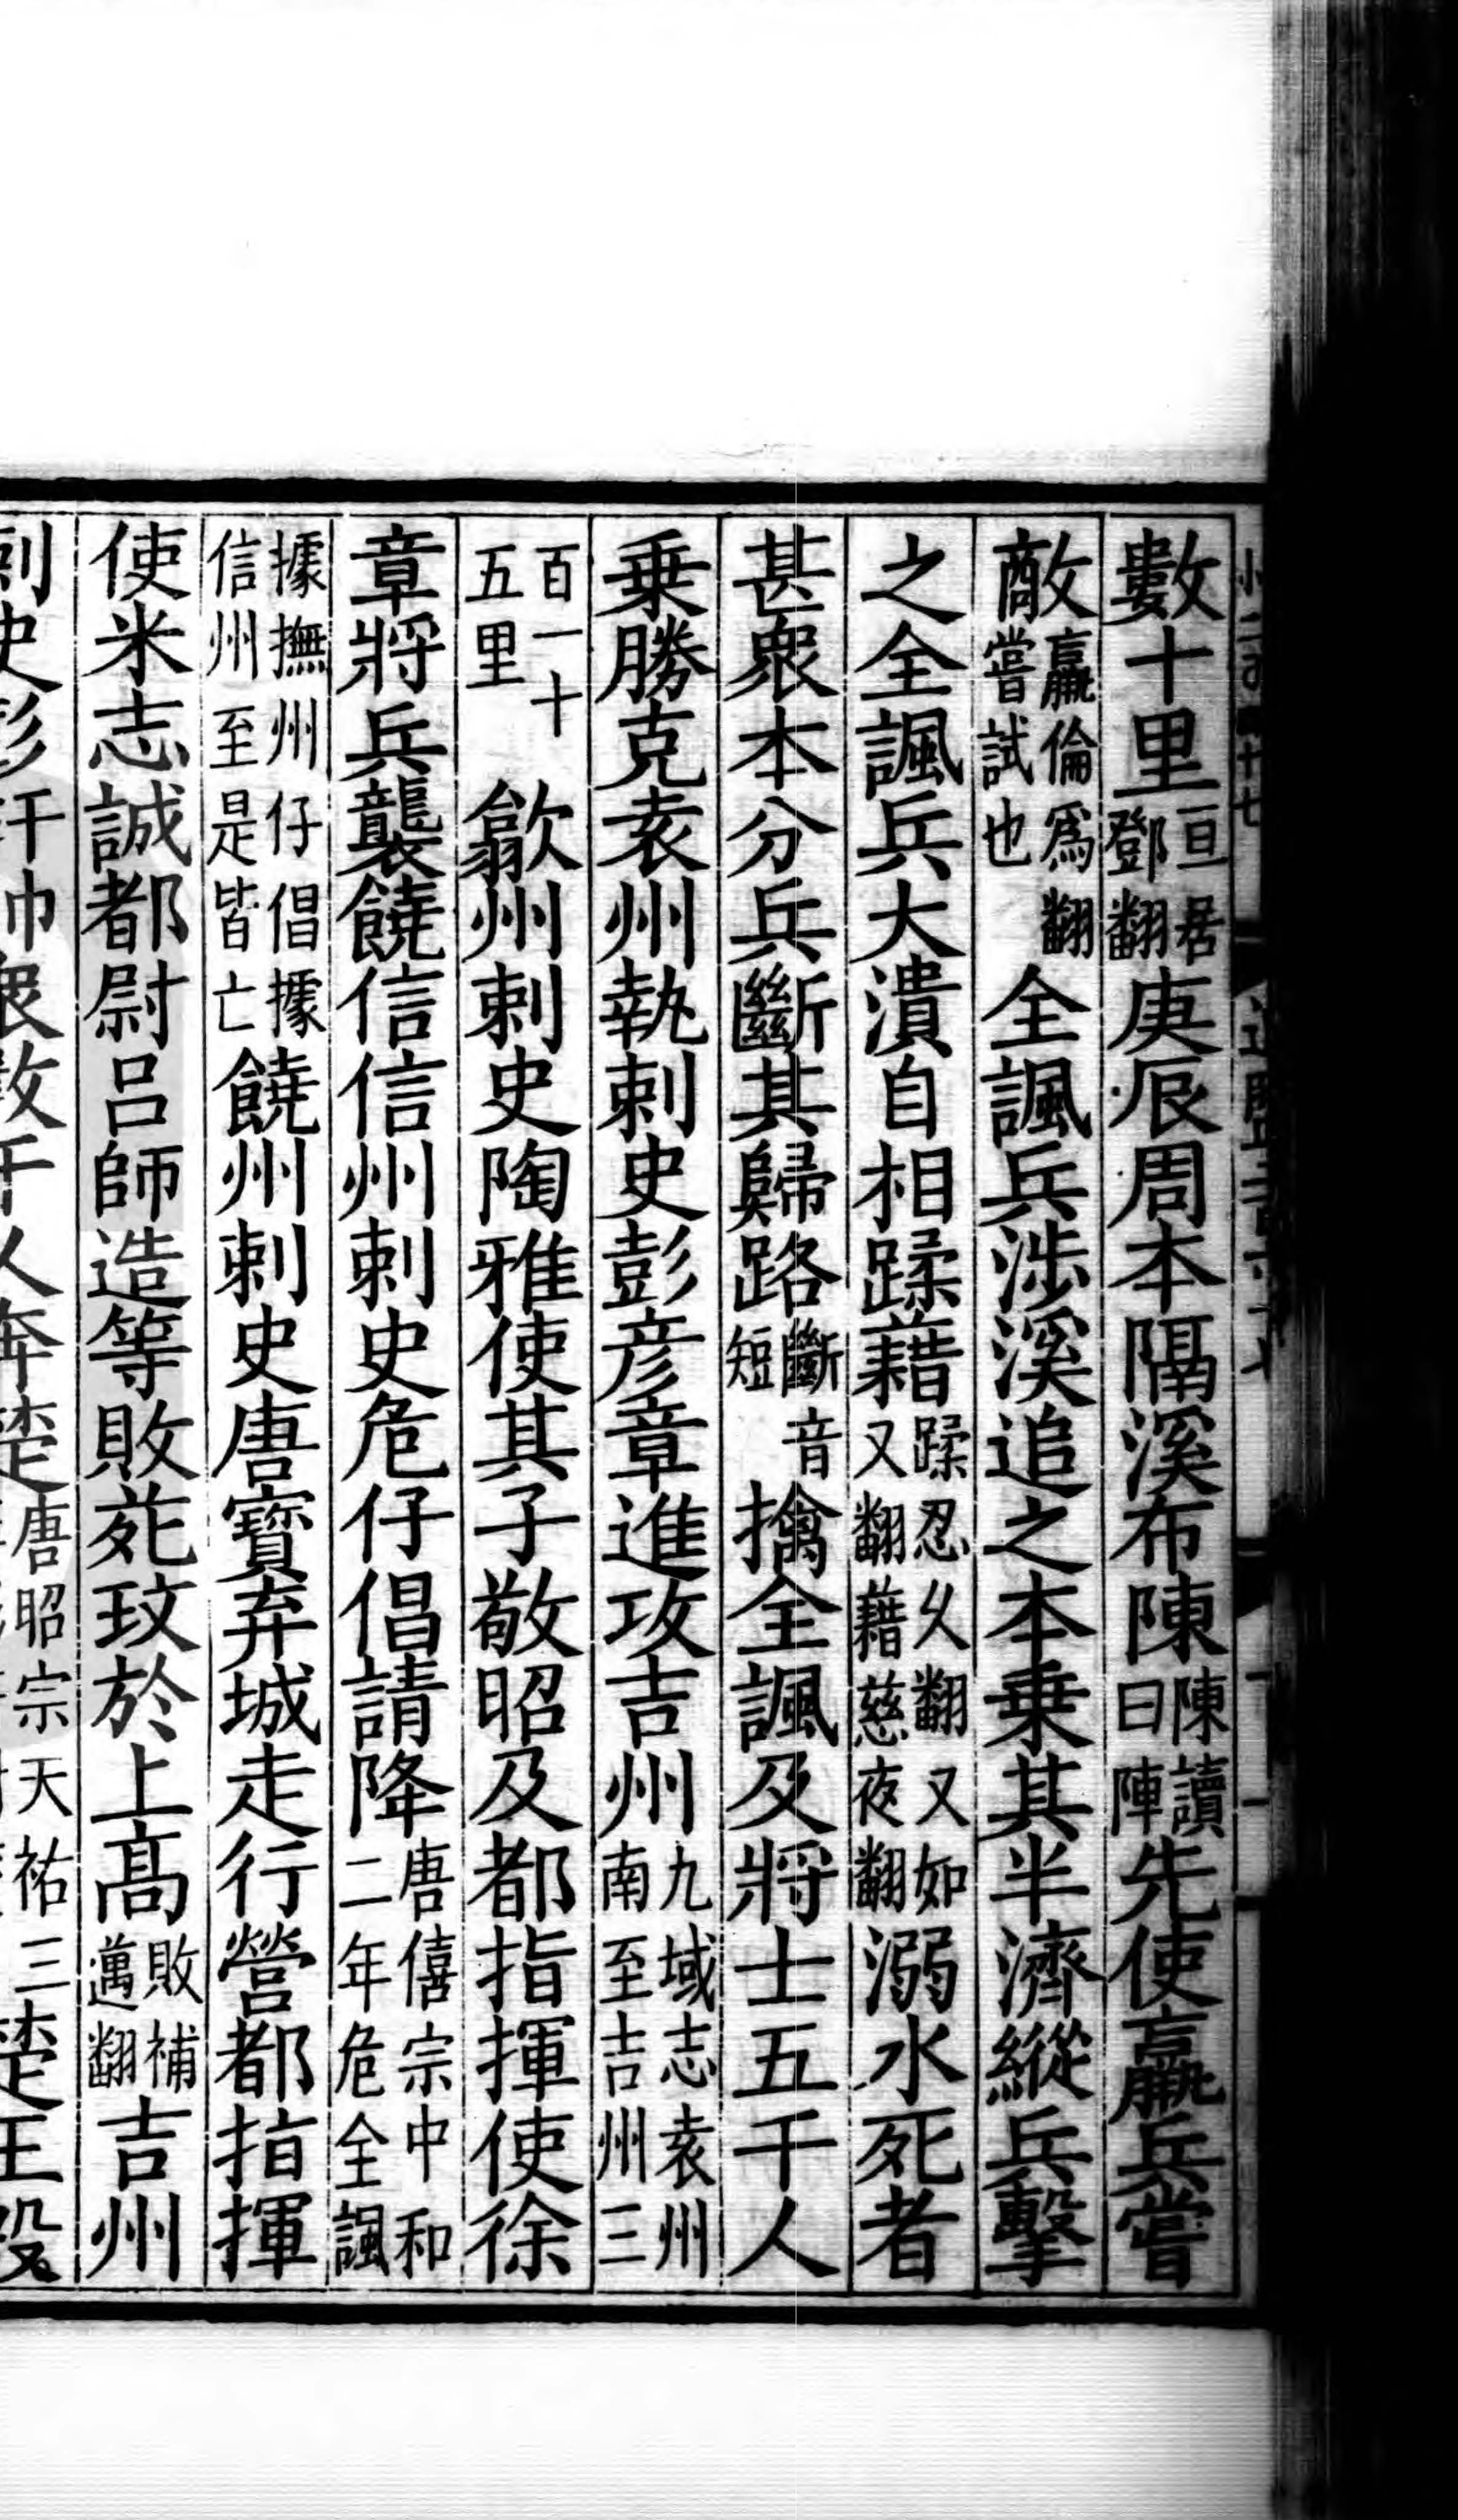 數十里亘居鄧翻庚辰周本隔溪布陳陳讀曰陣先使羸兵嘗
敵羸倫爲翻嘗試也全諷兵涉溪追之本乗其半濟縱兵擊
之全諷兵大潰自相蹂藉蹂忍久翻又如又翻藉慈夜翻溺水死者
甚衆本分兵斷其歸路斷音短擒全諷及將士五千人
乗勝克袁州執刺史彭彦章進攻吉州九域志袁州南至吉州三
百一十五里歙州刺史陶雅使其子敬昭及都指揮使徐
章將兵襲饒信信州刺史危仔倡請降唐僖宗中和二年危全諷
據撫州仔倡據信州至是皆亡饒州刺史唐寳弃城走行營都指揮
使米志誠都尉吕師造等敗苑玫於上髙敗補邁翻吉州
刺史彭玕帥衆數千人奔楚唐昭宗天祐三楚王殷